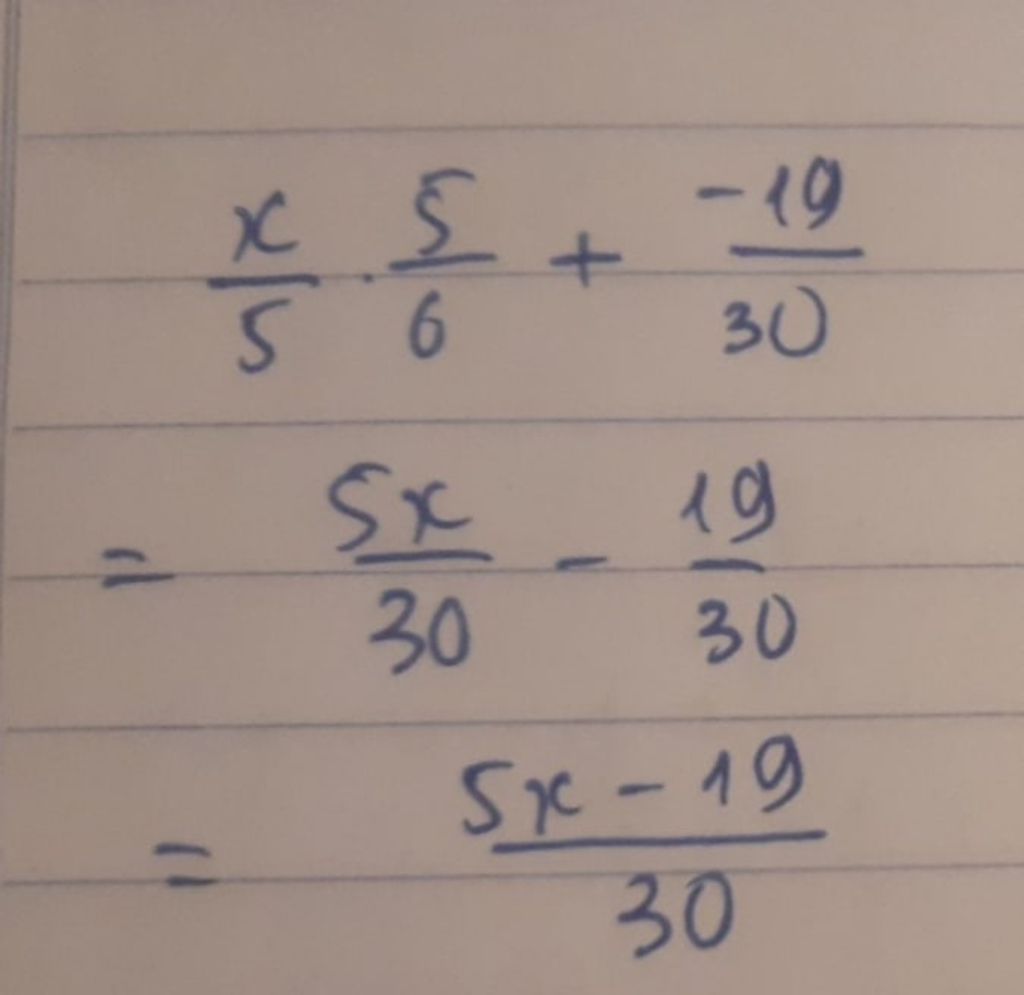 x/5 · 5/6 + -19/30
= 5x/30 - 19/30
= 5x - 19/30